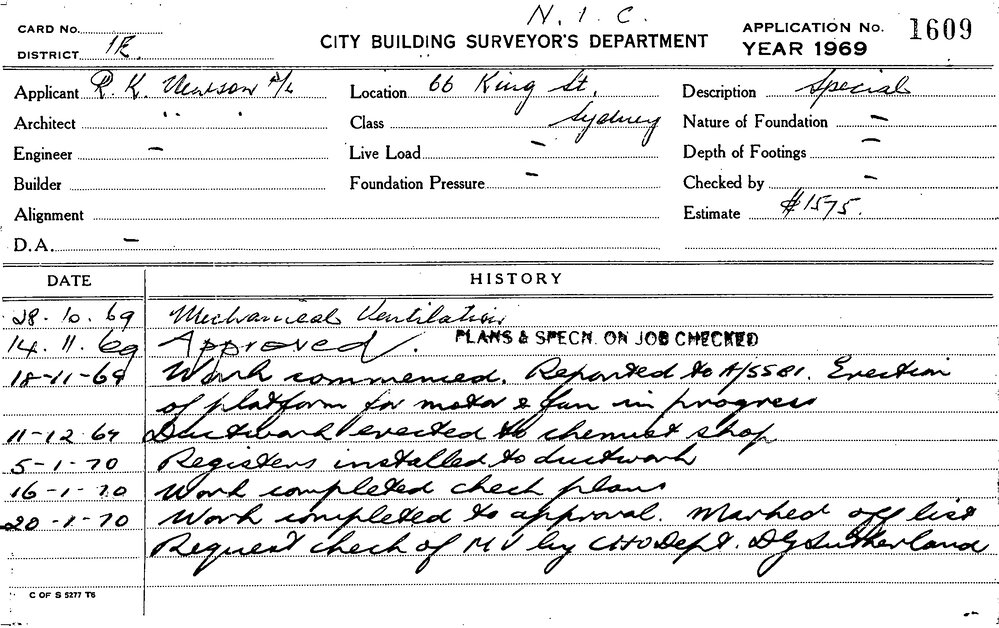 N. I. C.
CARD No.
CITY BUILDING SURVEYOR'S DEPARTMENT
APPLICATION No. 1609
DISTRICT 1E
YEAR 1969
Applicant R. K. Newson P/L Location 66 King St, Description Special
Architect " " Class Sydney Nature of Foundation —
Engineer — Live Load — Depth of Footings —
Builder Foundation Pressure — Checked by —
Alignment Estimate $1575.
D.A. —
DATE HISTORY
28.10.69 Mechanical Ventilation
14.11.69 Approved. PLANS & SPECN. ON JOB CHECKED
18-11-69 Work commenced. Reported to A/5581. Erection
of platform for motor & fan in progress
11-12 69 Ductwork erected to chemist shop
5-1-70 Registers installed to ductwork
16-1-70 Work completed check plans
20-1-70 Work completed to approval. Marked off list
Request check of MV by CHO Dept. DG Sutherland
C OF S 5277 T6